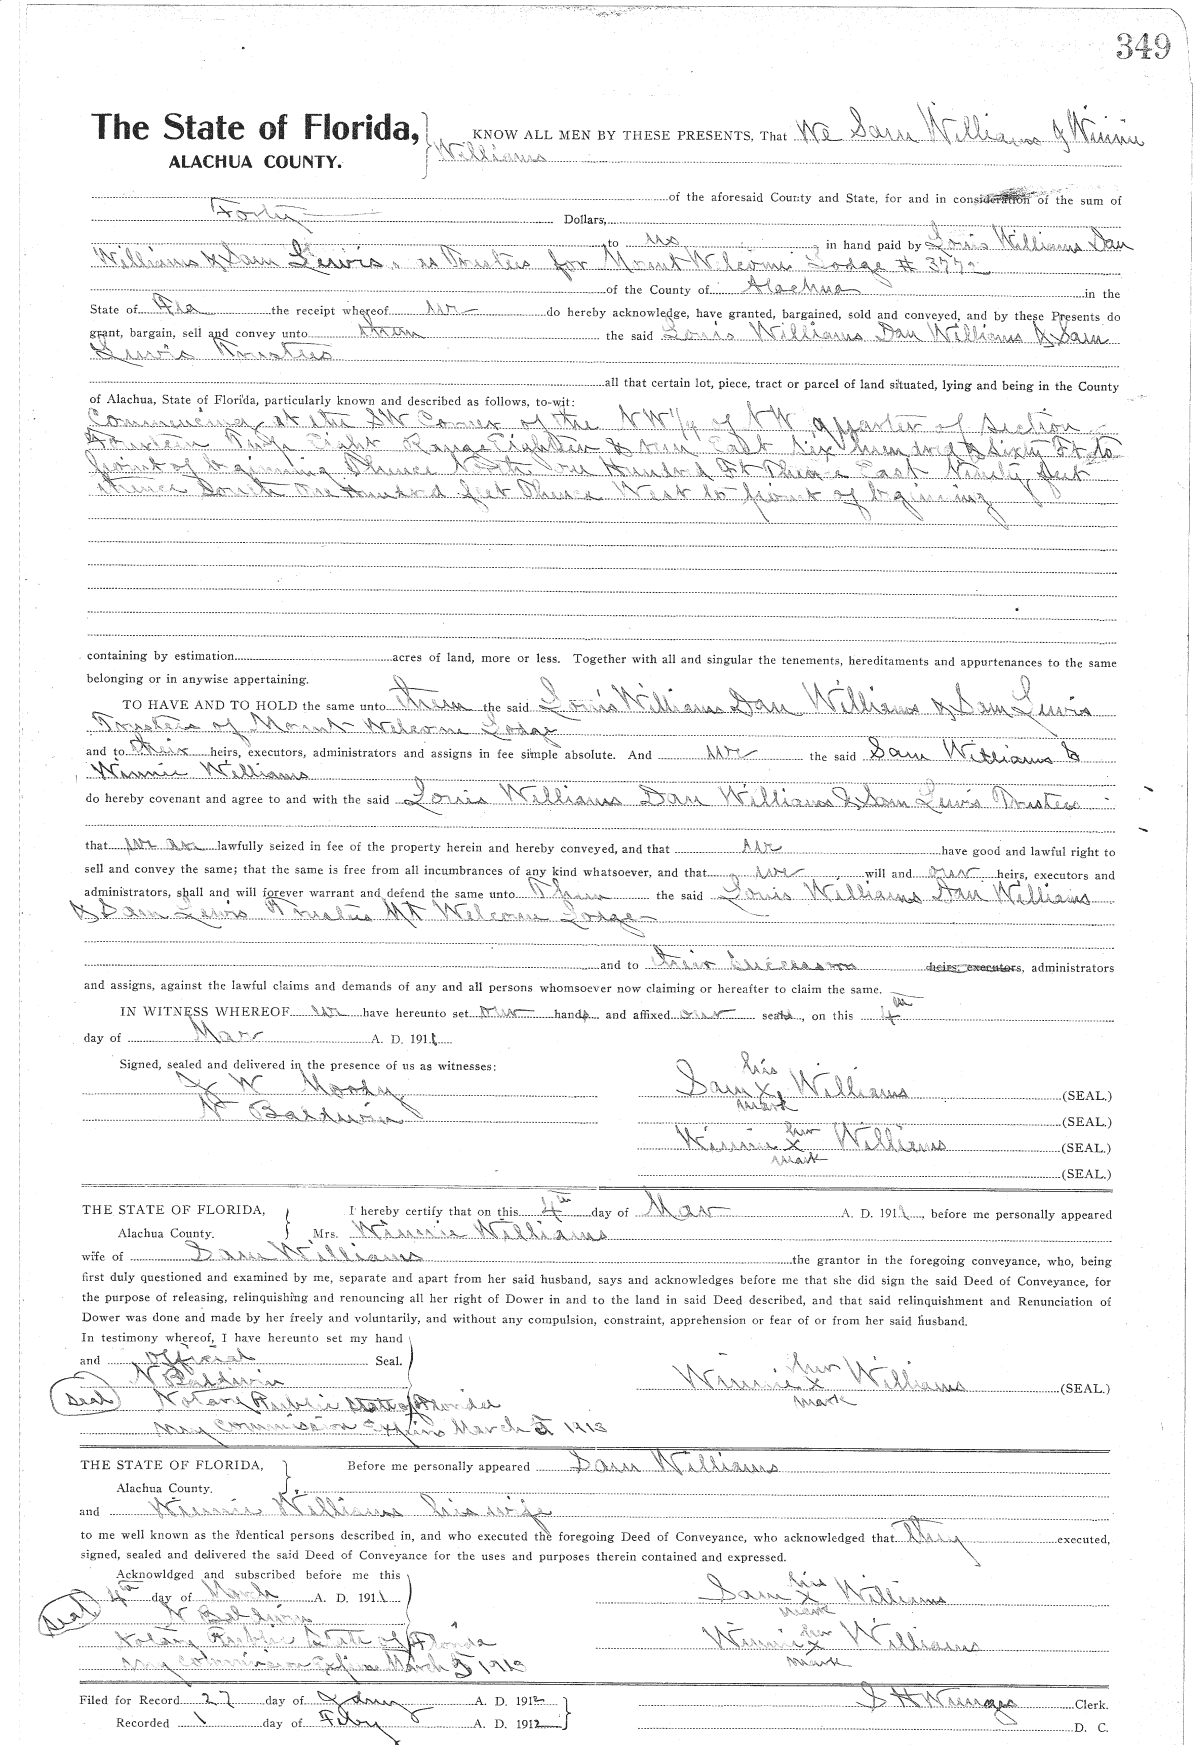 349
The State of Florida, KNOW ALL MEN BY THESE PRESENTS, That We Sam Williams & Winnie
ALACHUA COUNTY. Williams
of the aforesaid County and State, for and in consideration of the sum of
Forty Dollars,
to us in hand paid by Louis Williams Dan
Williams & Sam Lewis, as Trustees for Mount Welcome Lodge # 3772
of the County of Alachua in the
State of Fla the receipt whereof we do hereby acknowledge, have granted, bargained, sold and conveyed, and by these Presents do
grant, bargain, sell and convey unto them the said Louis Williams Dan Williams & Sam
Lewis Trustees
all that certain lot, piece, tract or parcel of land situated, lying and being in the County
of Alachua, State of Florida, particularly known and described as follows, to-wit:
Commencing at the SW Corner of the NW 1/4 of NW quarter of Section
Fourteen Twp Eight Range Eighteen & run East Six hundred & Sixty Ft to
point of beginning Thence North One Hundred Ft Thence East Ninety feet
thence South One Hundred feet Thence West to point of beginning
containing by estimation acres of land, more or less. Together with all and singular the tenements, hereditaments and appurtenances to the same
belonging or in anywise appertaining.
TO HAVE AND TO HOLD the same unto them the said Louis Williams Dan Williams & Sam Lewis
Trustees of Mount Welcome Lodge
and to their heirs, executors, administrators and assigns in fee simple absolute. And we the said Sam Williams &
Winnie Williams
do hereby covenant and agree to and with the said Louis Williams Dan Williams & Sam Lewis Trustees
that we are lawfully seized in fee of the property herein and hereby conveyed, and that we have good and lawful right to
sell and convey the same; that the same is free from all incumbrances of any kind whatsoever, and that we will and our heirs, executors and
administrators, shall and will forever warrant and defend the same unto Them the said Louis Williams Dan Williams
& Sam Lewis Trustees Mt Welcome Lodge
and to their successors heirs, executors, administrators
and assigns, against the lawful claims and demands of any and all persons whomsoever now claiming or hereafter to claim the same.
IN WITNESS WHEREOF we have hereunto set our hands and affixed our seals, on this 4th
day of Mar A. D. 1911
Signed, sealed and delivered in the presence of us as witnesses:
W Moody
N Baldwin
his
Sam X Williams (SEAL.)
mark
(SEAL.)
her
Winnie X Williams (SEAL.)
mark
(SEAL.)
THE STATE OF FLORIDA, I hereby certify that on this 4th day of Mar A. D. 1911, before me personally appeared
Alachua County. Mrs. Winnie Williams
wife of Sam Williams the grantor in the foregoing conveyance, who, being
first duly questioned and examined by me, separate and apart from her said husband, says and acknowledges before me that she did sign the said Deed of Conveyance, for
the purpose of releasing, relinquishing and renouncing all her right of Dower in and to the land in said Deed described, and that said relinquishment and Renunciation of
Dower was done and made by her freely and voluntarily, and without any compulsion, constraint, apprehension or fear of or from her said husband.
In testimony whereof, I have hereunto set my hand
and official Seal.
N Baldwin
Seal Notary Public State of Florida
My Commission Expires March 5 1913
her
Winnie X Williams (SEAL.)
mark
THE STATE OF FLORIDA, Before me personally appeared Sam Williams
Alachua County.
and Winnie Williams his wife
to me well known as the identical persons described in, and who executed the foregoing Deed of Conveyance, who acknowledged that They executed,
signed, sealed and delivered the said Deed of Conveyance for the uses and purposes therein contained and expressed.
Acknowldged and subscribed before me this
4th day of March A. D. 1911
Seal N Baldwin
Notary Public State of Florida
My Commission Expires March 5 1913
his
Sam X Williams
mark
her
Winnie X Williams
mark
Filed for Record 27 day of Jany A. D. 1912
Recorded 1 day of Feby A. D. 1912
S H Wienges Clerk.
D. C.